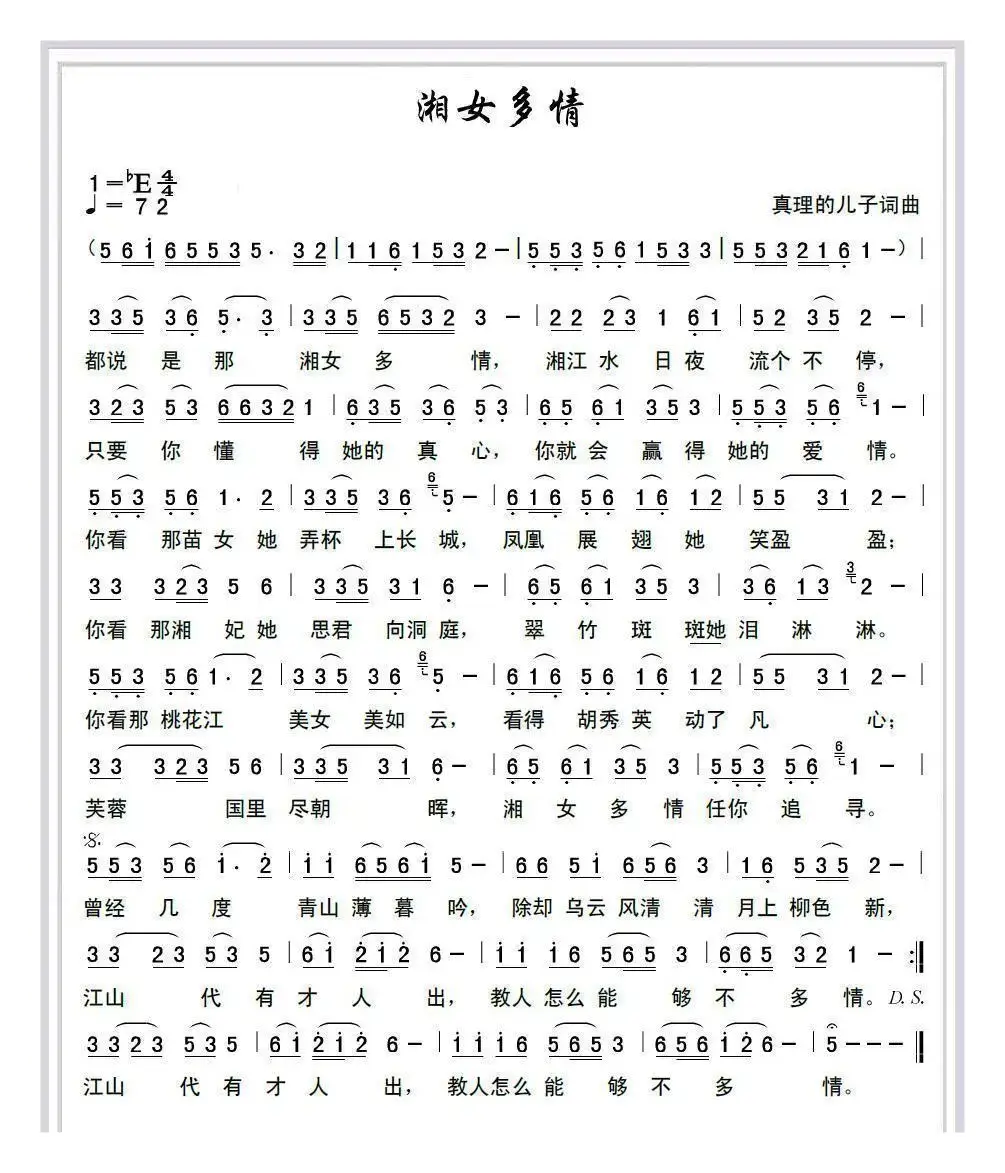 湘女多情
1=♭E 4/4
♩= 72
真理的儿子词曲
（5 6 i 6 5 5 3 5· 3 2 | 1 1 6 1 5 3 2 - | 5 5 3 5 6 1 5 3 3 | 5 5 3 2 1 6 1 - ）|
3 3 5 3 6 5· 3 | 3 3 5 6 5 3 2 3 - | 2 2 2 3 1 6 1 | 5 2 3 5 2 - |
都说 是 那 湘女 多 情， 湘江 水 日 夜 流个 不 停，
3 2 3 5 3 6 6 3 2 1 | 6 3 5 3 6 5 3 | 6 5 6 1 3 5 3 | 5 5 3 5 6 6 1 - |
只要 你 懂 得 她的 真 心， 你就 会 赢 得 她的 爱 情。
5 5 3 5 6 1· 2 | 3 3 5 3 6 6 5 - | 6 1 6 5 6 1 6 1 2 | 5 5 3 1 2 - |
你看 那苗 女 她 弄杯 上长 城， 凤凰 展 翅 她 笑盈 盈；
3 3 3 2 3 5 6 | 3 3 5 3 1 6 - | 6 5 6 1 3 5 3 | 3 6 1 3 3 2 - |
你看 那湘 妃 她 思君 向洞 庭， 翠 竹 斑 斑她 泪 淋 淋。
5 5 3 5 6 1· 2 | 3 3 5 3 6 6 5 - | 6 1 6 5 6 1 6 1 2 | 5 5 3 1 2 - |
你看那 桃花江 美女 美如 云， 看得 胡秀 英 动了 凡 心；
3 3 3 2 3 5 6 | 3 3 5 3 1 6 - | 6 5 6 1 3 5 3 | 5 5 3 5 6 6 1 - |
芙蓉 国里 尽朝 晖， 湘 女 多 情 任你 追 寻。
𝄋
5 5 3 5 6 i· 2 | i i 6 5 6 i 5 - | 6 6 5 i 6 5 6 3 | 1 6 5 3 5 2 - |
曾经 几 度 青山 薄 暮 吟， 除却 乌云 风清 清 月上 柳色 新，
3 3 2 3 5 3 5 | 6 i 2 i 2 6 - | i i i 6 5 6 5 3 | 6 6 5 3 2 1 - :‖
江山 代 有 才 人 出， 教人 怎么 能 够 不 多 情。 D. S.
3 3 2 3 5 3 5 | 6 i 2 i 2 6 - | i i i 6 5 6 5 3 | 6 5 6 i 2 6 - | 5 - - - ‖
江山 代 有 才 人 出， 教人怎么 能 够 不 多 情。